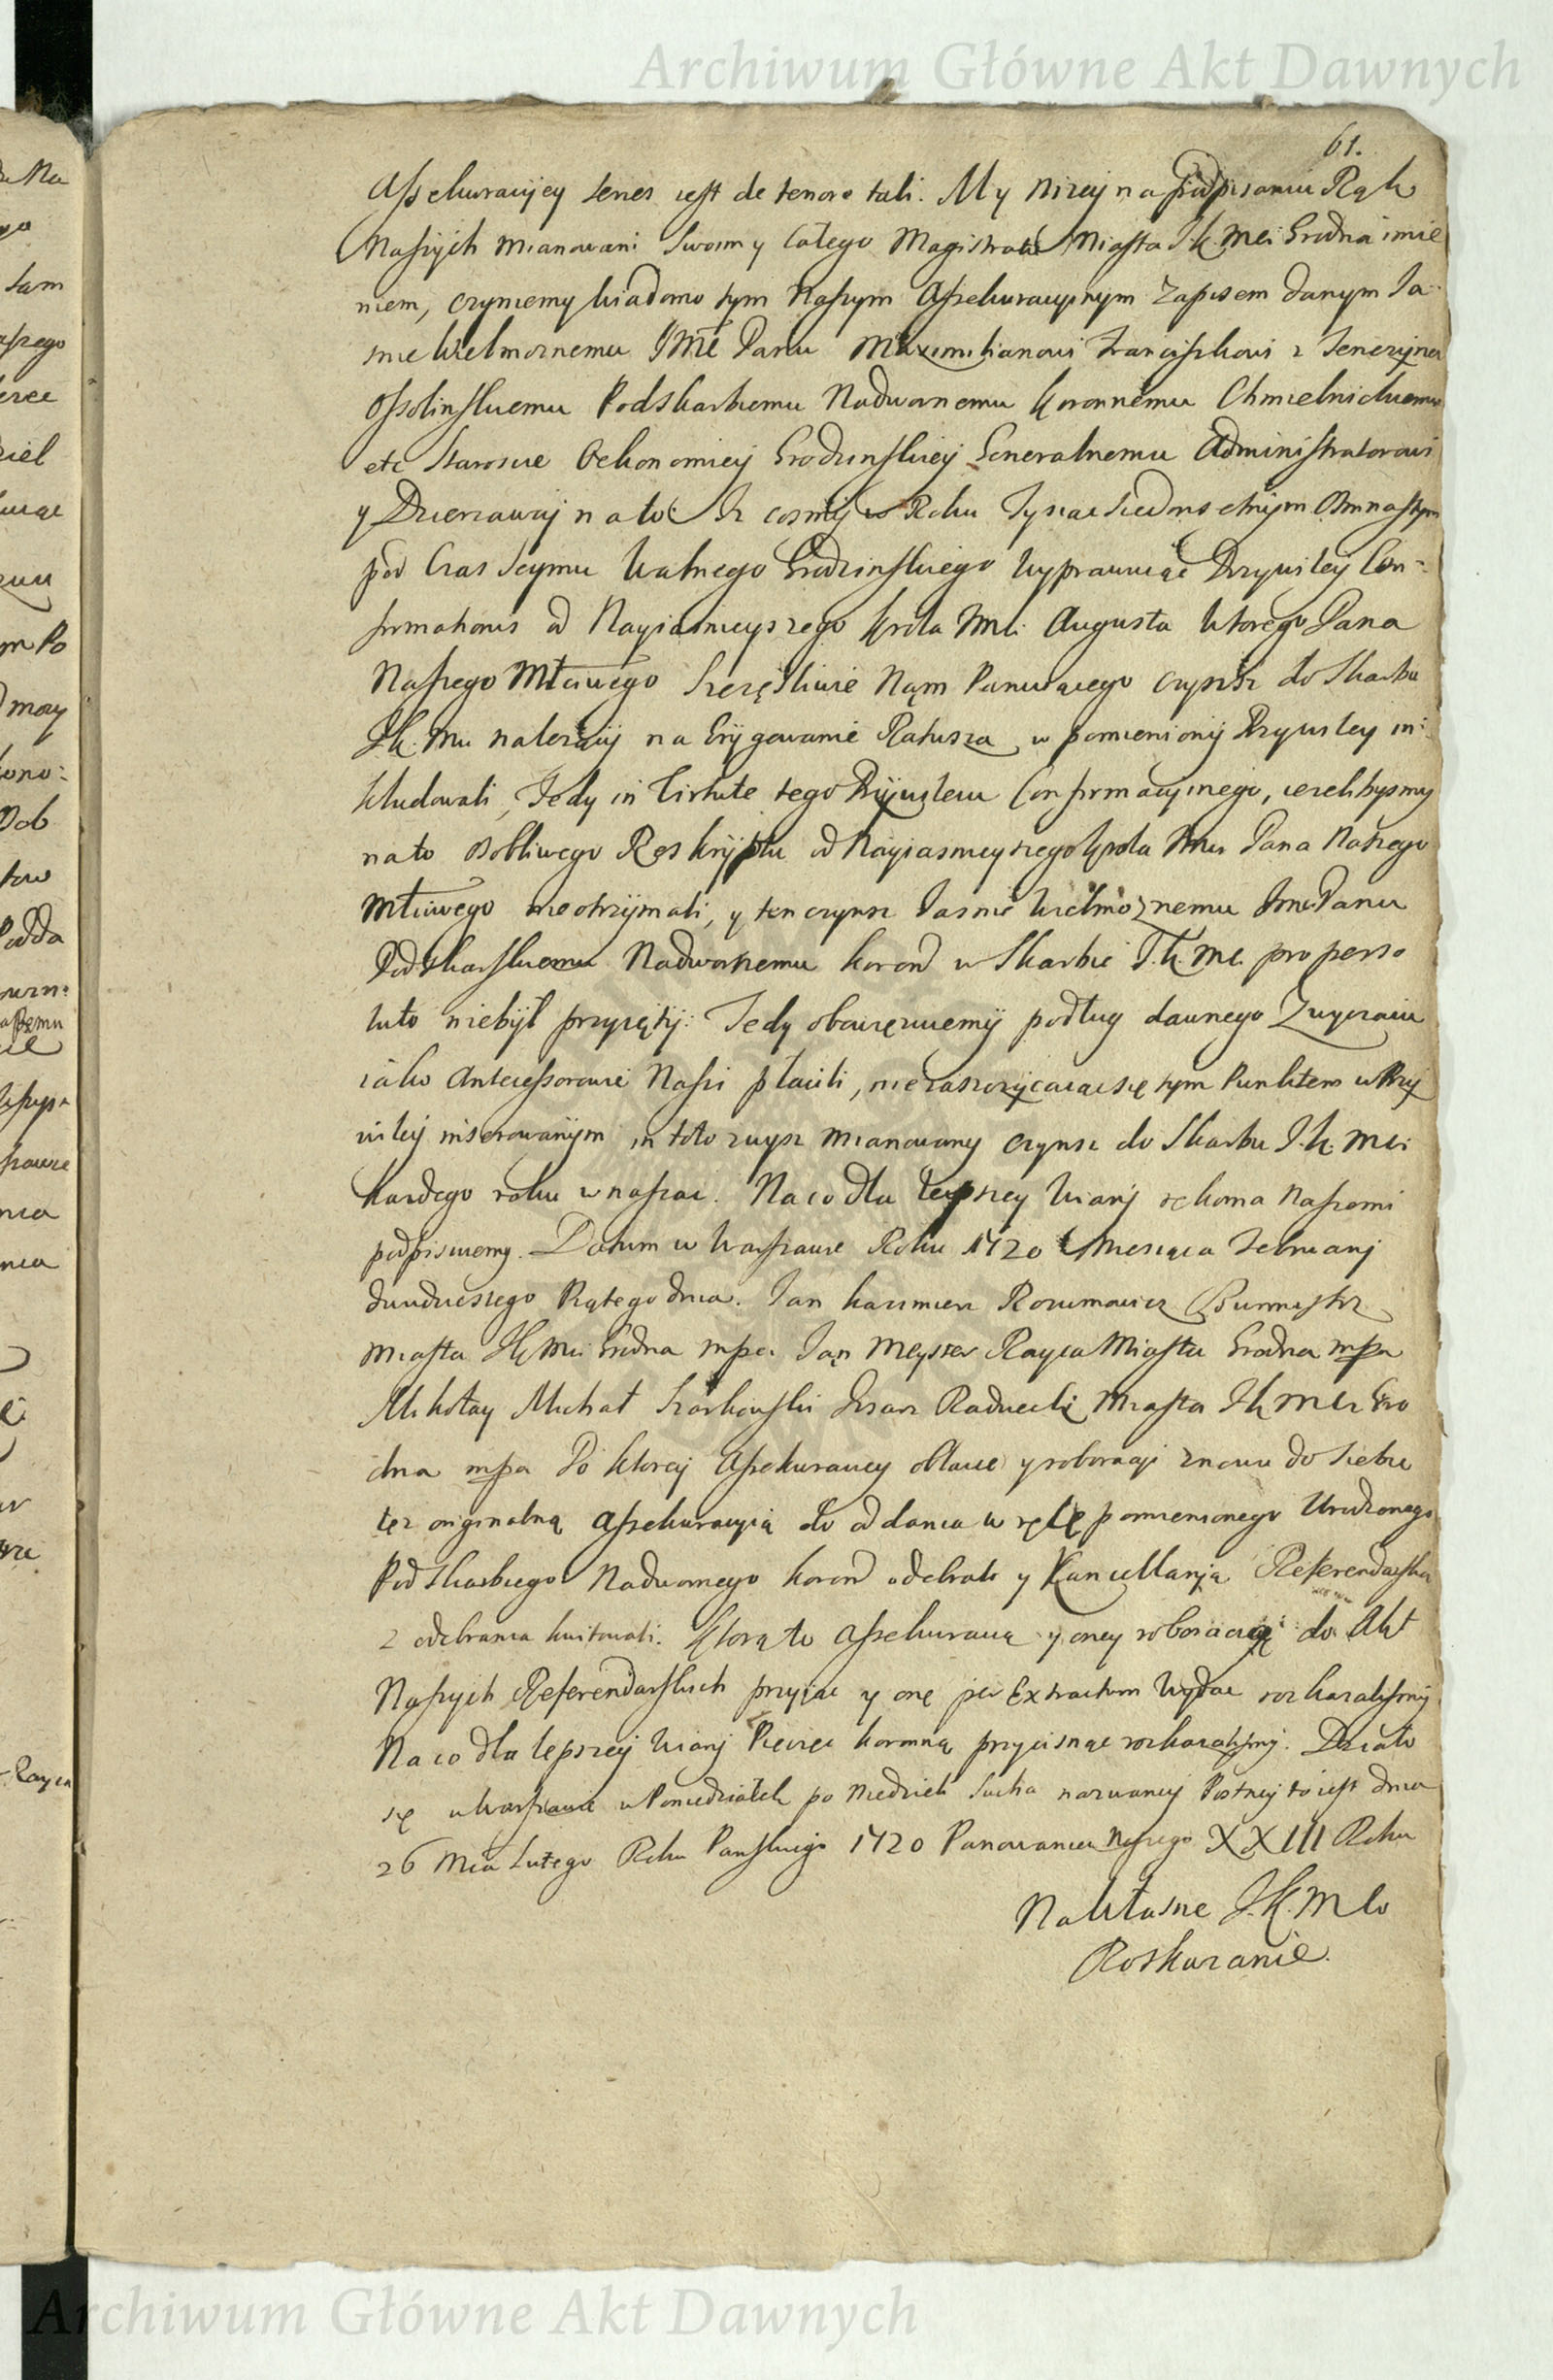 Archiwum Główne Akt Dawnych
61.
Assekuracyey series iest de tenore tali. My niżey na podpisaniu Rąk
Naszych mianowani swoim y całego Magistratu Miasta J.K. Mci Grodna imie
niem, czyniemy wiadomo tym naszym Assekuracyinym zapisem danym Ja
śnie Wielmożnemu JMC Panu Maximilianowi Franciszkowi z Tenczyna
Ossolinskiemu Podskarbiemu Nadwornemu Koronnemu Chmielnickiemu
etc Staroscie Oekonomiey Grodzinskiey Generalnemu Administratorowi
y Dzierzawcy na to: Iż cosmy w Roku Tysiąc siedmsetnym Osmnastym
pod Czas Seymu Walnego Grodzinskiego Wyprawuiąc Przywiley Con-
firmationis od Nayiasnieyszego Krola Jmci Augusta Wtorego Pana
Naszego Młciwego szczęsliwie Nąm Panuiącego czynsz do Skarbu
JK. Mci należący na Erygowanie Ratusza w pomieniony Przywiley in-
kludowali, Tedy in Virtute tego Przywileiu Confirmacyinego, ieżelibysmy
na to osobliwego Reskryptu od Nayiasnieyszego Krola Jmci Pana Naszego
Młciwego nie otrzymali, y ten czynsz Jasnie Wielmożnemu Jmci Panu
Podskarbiemu Nadwornemu Koron w Skarbie J.K. Mci pro perso
luto niebył przyięty: Tedy obowięzuiemy podług dawnego Zwyczaiu
iako Antecessorowie Nasi płacili, nie zaszczycaiąc się tym Punktem w Przy
wiley inserowanym in toto zwysz mianowany czynsz do Skarbu J.K. Mci
każdego roku wnaszać. Na co dla lepszey Wiary rękoma naszemi
podpisuiemy. Datum w Warszawie Roku 1720 Miesiąca Februarij
dwudziestego Piątego dnia. Jan Kazimierz Rozumowicz Burmistrz
Miasta JK Mci Grodna mpa. Jąn Meyszer Rayca Miasta Grodna mpa
Mikołay Michał Pisarz Radziecki Miasta JK Mci Gro
dna mpa Po ktorey Assekuracyey oblacie y roboracyi znowu do siebie
tęż originalną Assekuracyią do oddania w ręce pomienionego Urodzonego
Podskarbiego Nadwornego Koron odebrali y Kancellaryą Referendarską
z odebrania kwitowali. Ktorą to Assekuracyą y oney roboracyą do Akt
Naszych Referendarskich przyiąć y onę per Extractum Wydać rozkazalismy
Na co dla lepszey Wiary Pieczęć koronną przycisnąć rozkazalismy. Działo
się w Warszawie w Poniedziałek po Niedzieli Sucha nazwaney Postney to iest dnia
26 Mca Lutego Roku Panskiego 1720 Panowania Naszego XXIII Roku
Na Własne J.K. Mci
Roskazanie.
Archiwum Główne Akt Dawnych